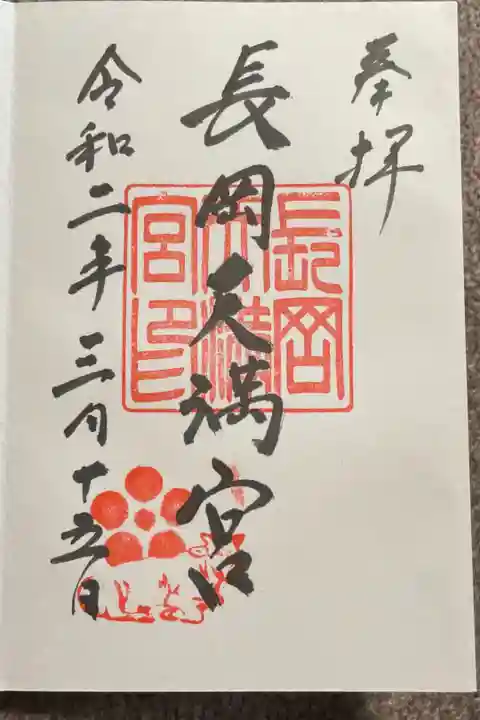 奉拝
長岡天満宮
令和二年三月十五日
長岡
天満
宮印